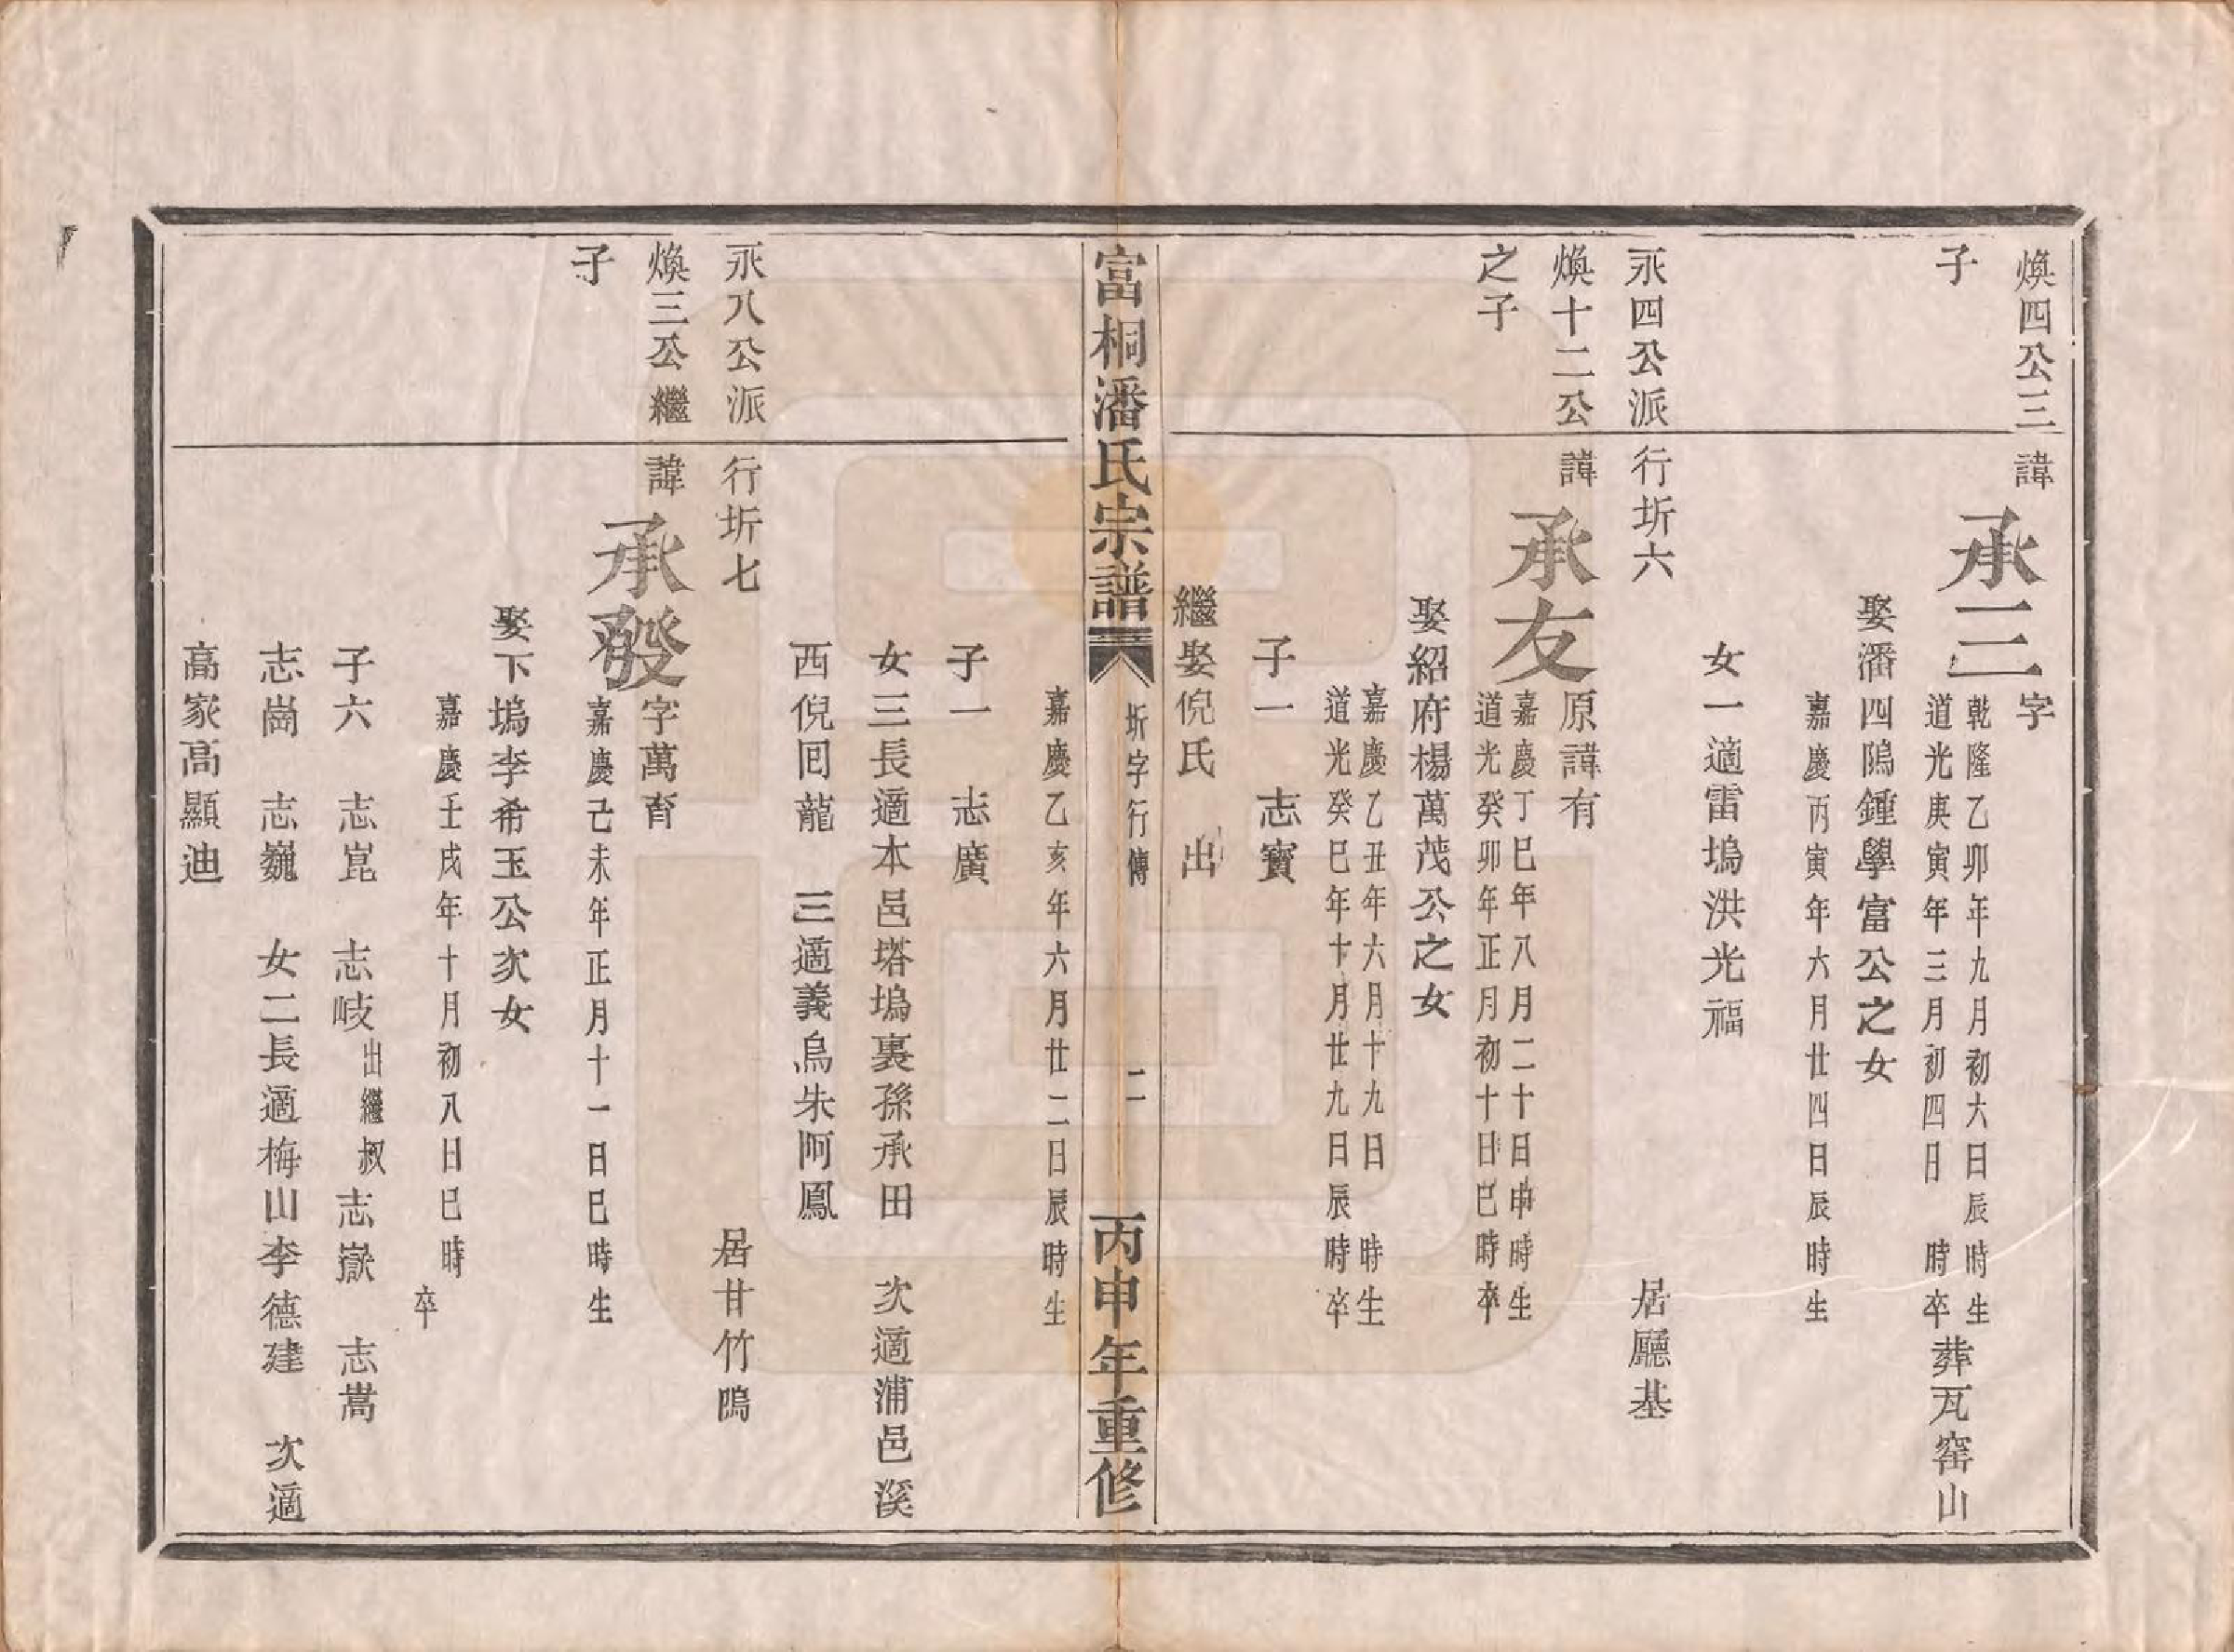 煥四公三
子
諱承三字
乾隆乙卯年九月初六日辰時生
道光庚寅年三月初四日 時卒
葬瓦窰山
娶潘四隖鍾學富公之女
嘉慶丙寅年六月廿四日辰時生
女一適雷塢洪光福
永四公派
行圻六
居廳基
煥十二公
之子
諱承友原諱有
嘉慶丁巳年八月二十日申時生
道光癸卯年正月初十日巳時卒
娶紹府楊萬茂公之女
嘉慶乙丑年六月十九日 時生
道光癸巳年十月廿九日辰時卒
子一 志寶
繼娶倪氏 出
富桐潘氏宗譜
圻字行傳
二
丙申年重修
嘉慶乙亥年六月廿二日辰時生
子一 志廣
女三長適本邑塔塢裏孫承田 次適浦邑溪
西倪囘龍 三適義烏朱阿鳳
永八公派
行圻七
居甘竹隖
煥三公繼
子
諱承發字萬育
嘉慶己未年正月十一日巳時生
娶下塢李希玉公次女
嘉慶壬戌年十月初八日巳時
卒
子六 志崑 志岐出繼叔志嶽 志嵩
志崗 志巍 女二長適梅山李德建 次適
高家高顯迪